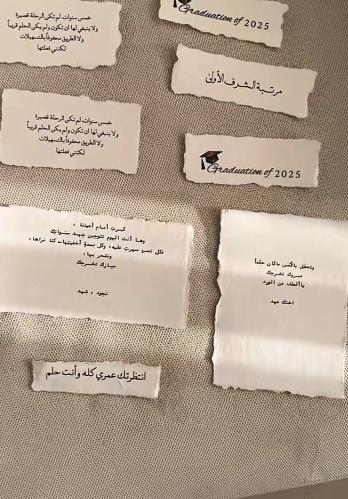 خمس سنوات لم تكن الرحلة قصيرة
ولا ينبغي لها ان تكون ولم يكن الحلم قريباً
ولا الطريق محفوفاً بالتسهيلات
لكنني فعلتها
Graduation of 2025
مرتبة الشرف الأولى
خمس سنوات لم تكن الرحلة قصيرة
ولا ينبغي لها ان تكون ولم يكن الحلم قريباً
ولا الطريق محفوفاً بالتسهيلات
لكنني فعلتها
Graduation of 2025
كبرتِ أمام أعيننا ،
وها أنت اليوم تتوجين جهد سنواتك
فكل تعب سهرت عليه، وكل دمعة أخفيتيها، كنا نراها،
ونشعر بها،
مبارك تخرجك
نجود ، شهد
وتحقق بالأمس ماكان حلماً
مبروك تخرجك
ياألطف من الورد
اختك عهد
انتظرتك عمري كله وأنت حلم